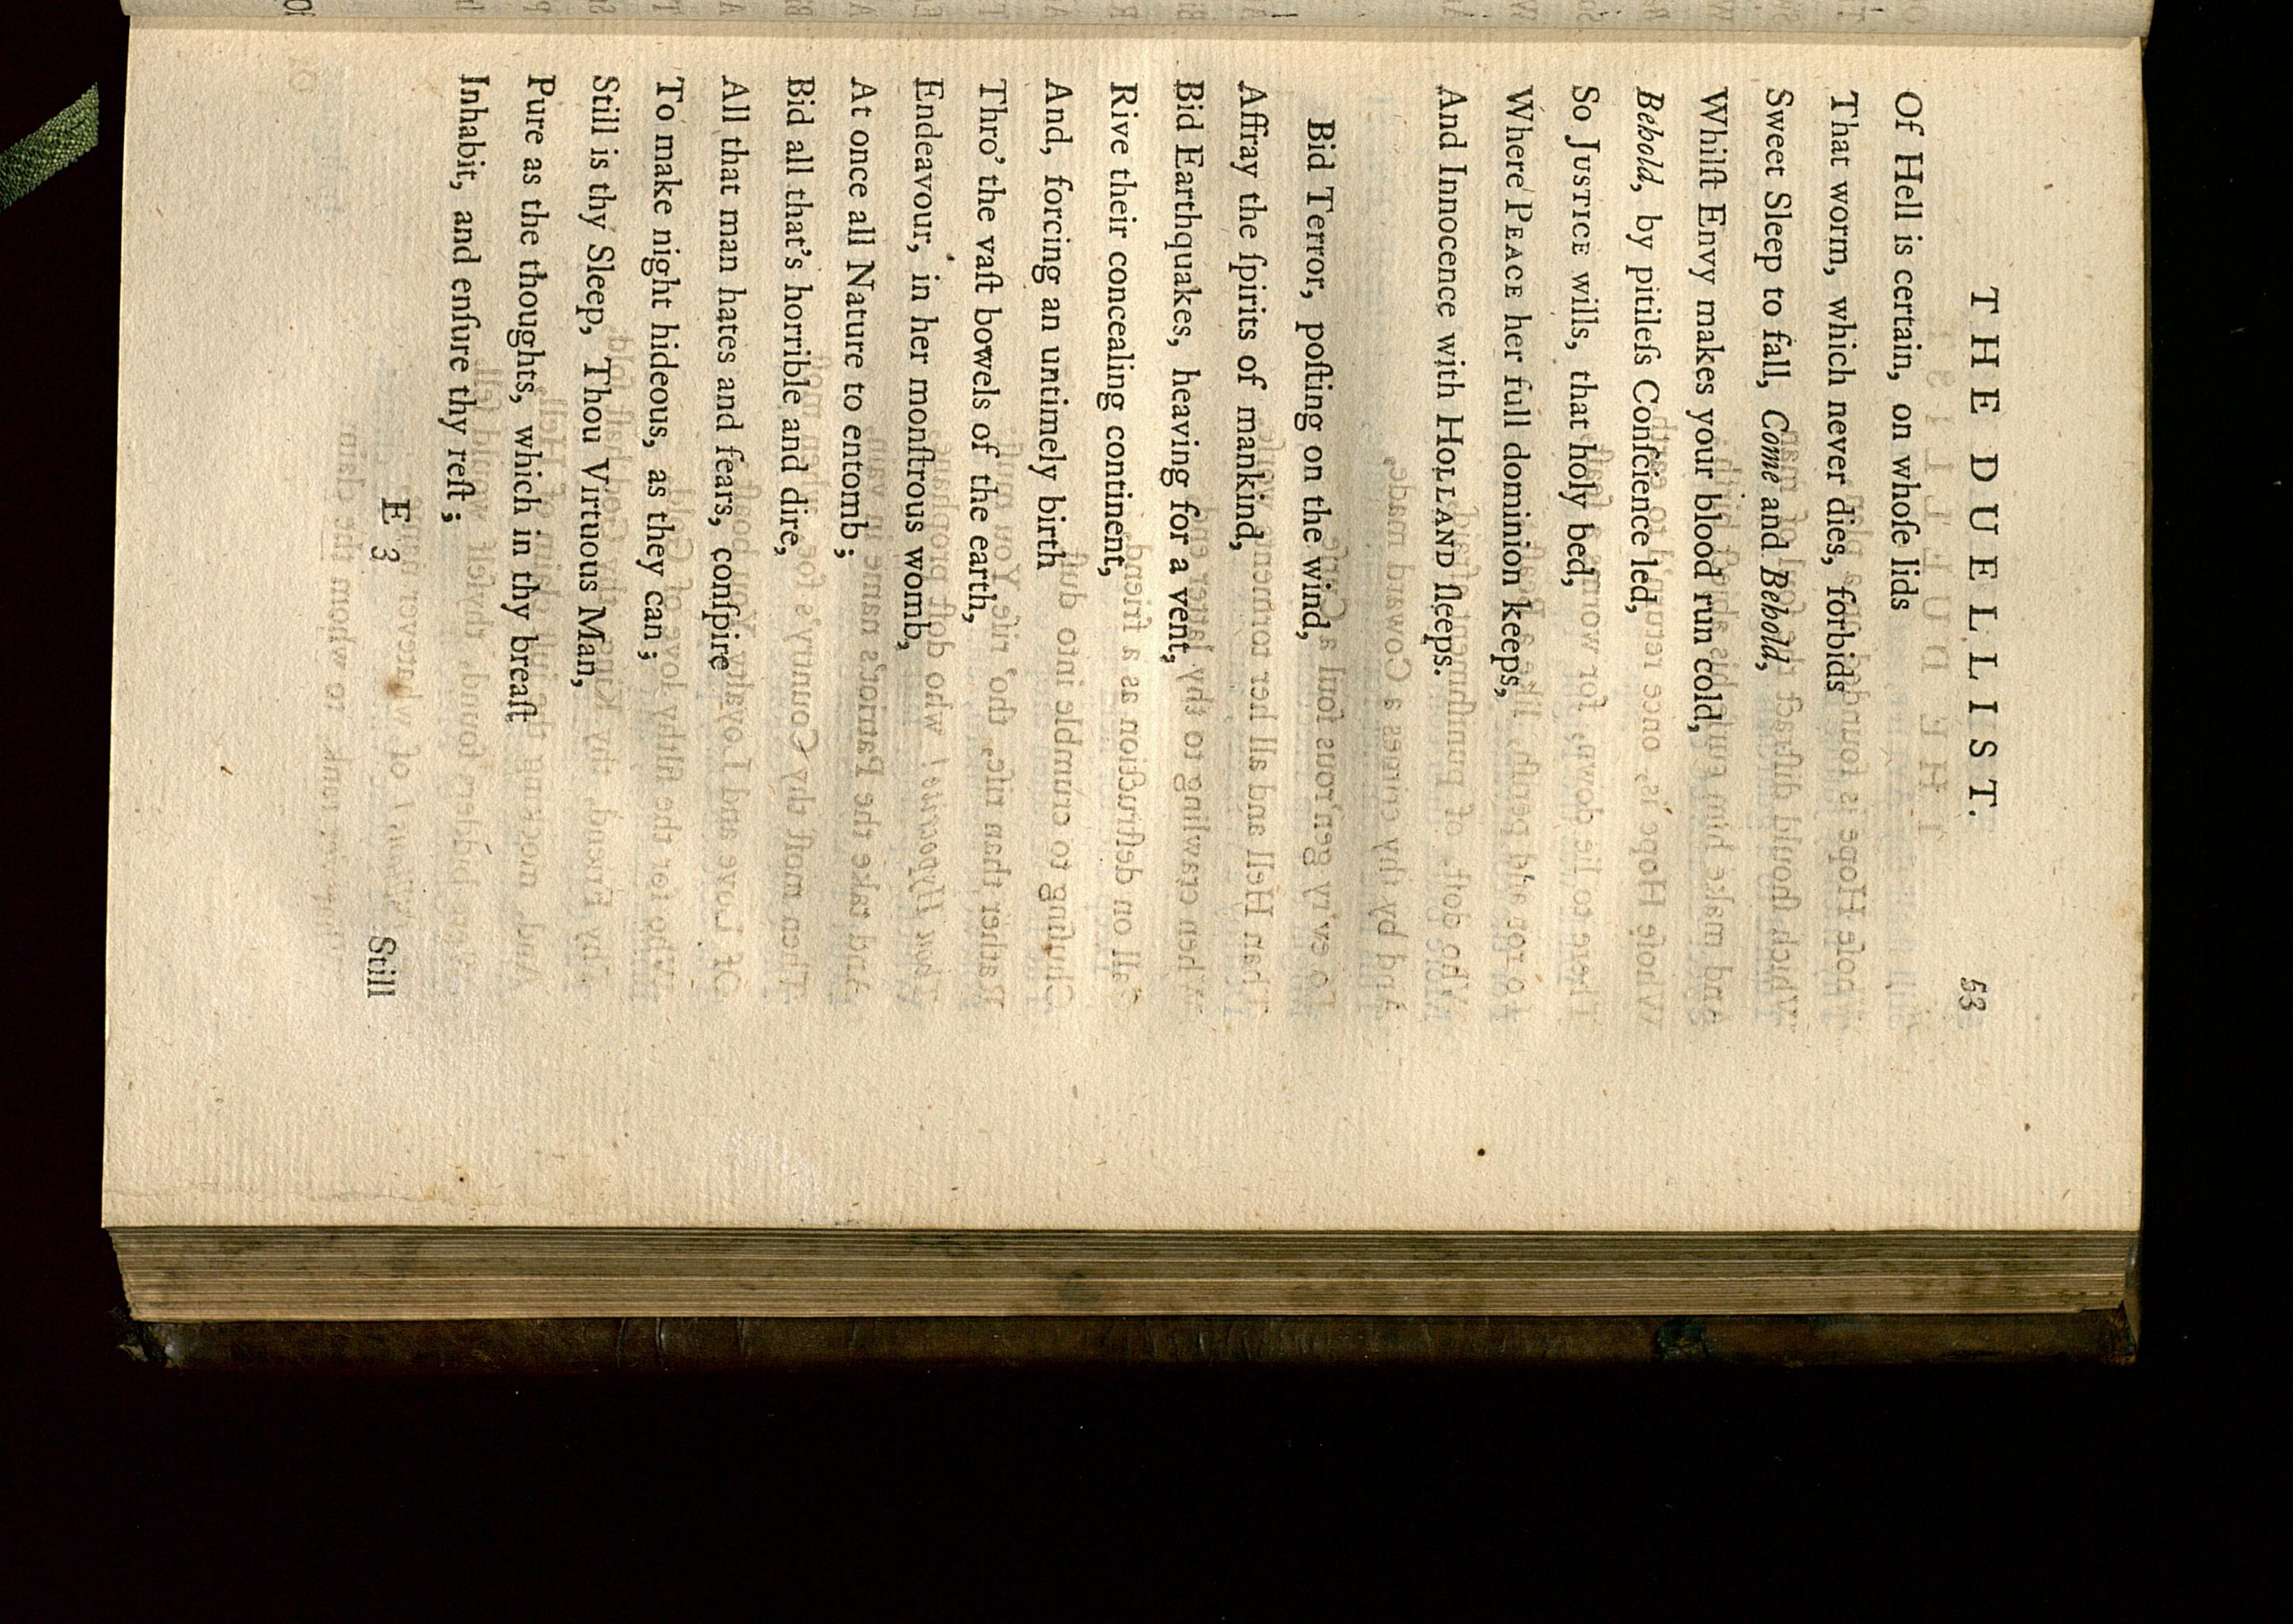 THE DUELLIST. 53
Of Hell is certain, on whoſe lids
That worm, which never dies, forbids
Sweet Sleep to fall, Come and Behold,
Whilſt Envy makes your blood run cold,
Behold, by pitileſs Conſcience led,
So JUSTICE wills, that holy bed,
Where PEACE her full dominion keeps,
And Innocence with HOLLAND ſleeps.
Bid Terror, poſting on the wind,
Affray the ſpirits of mankind,
Bid Earthquakes, heaving for a vent,
Rive their concealing continent,
And, forcing an untimely birth
Thro' the vaſt bowels of the earth,
Endeavour, in her monſtrous womb,
At once all Nature to entomb;
Bid all that's horrible and dire,
All that man hates and fears, conſpire
To make night hideous, as they can;
Still is thy Sleep, Thou Virtuous Man,
Pure as the thoughts, which in thy breaſt
Inhabit, and enſure thy reſt;
E 3
Still